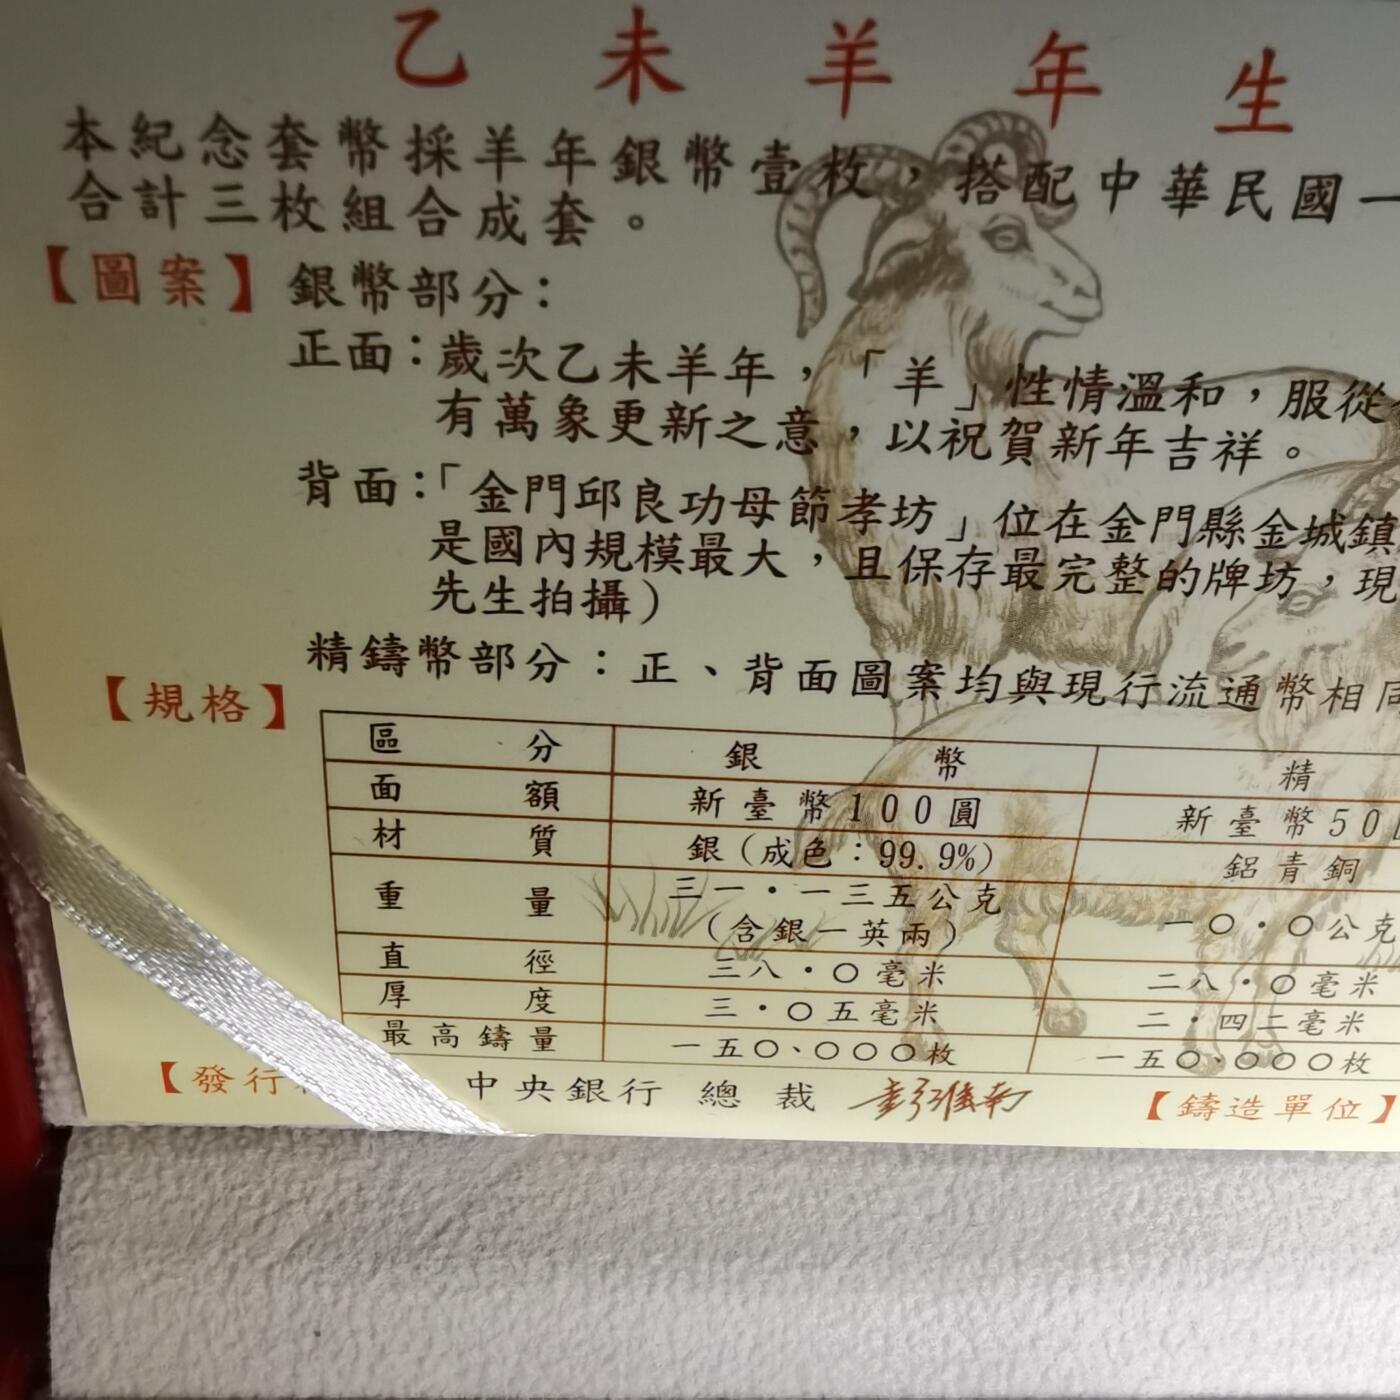 乙未羊年生
本紀念套幣採羊年銀幣壹枚，搭配中華民國一
合計三枚組合成套。
【圖案】銀幣部分：
正面：歲次乙未羊年，「羊」性情溫和，服從
有萬象更新之意，以祝賀新年吉祥。
背面：「金門邱良功母節孝坊」位在金門縣金城鎮
是國內規模最大，且保存最完整的牌坊，現
先生拍攝）
精鑄幣部分：正、背面圖案均與現行流通幣相同
【規格】
區分 銀幣 精
面額 新臺幣100圓 新臺幣50
材質 銀（成色：99.9%） 鋁青銅
重量 三一·一三五公克 一〇·〇公克
（含銀一英兩）
直徑 三八·〇毫米 二八·〇毫米
厚度 三·〇五毫米 二·四二毫米
最高鑄量 一五〇、〇〇〇枚 一五〇、〇〇〇枚
【發行 中央銀行 總裁 彭淮南 【鑄造單位】